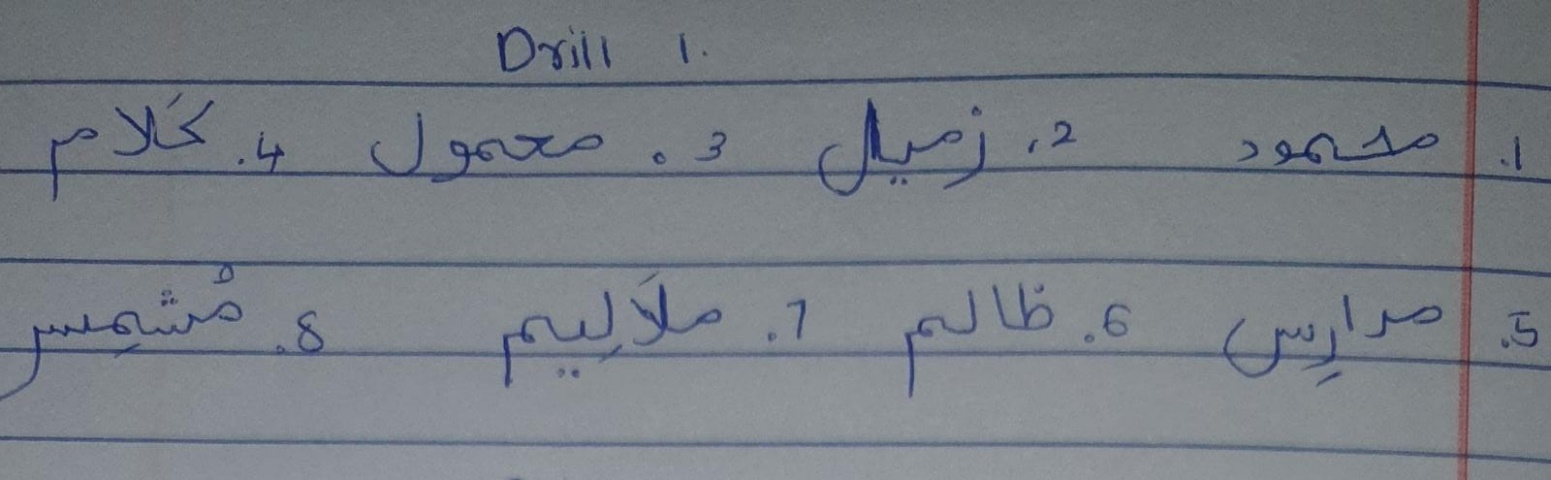 Drill 1.
1. محمود 2. زميل 3. معمول 4. كَلام
5. مدارِس 6. ظالم 7. ملَالِيم 8. مُشمِس